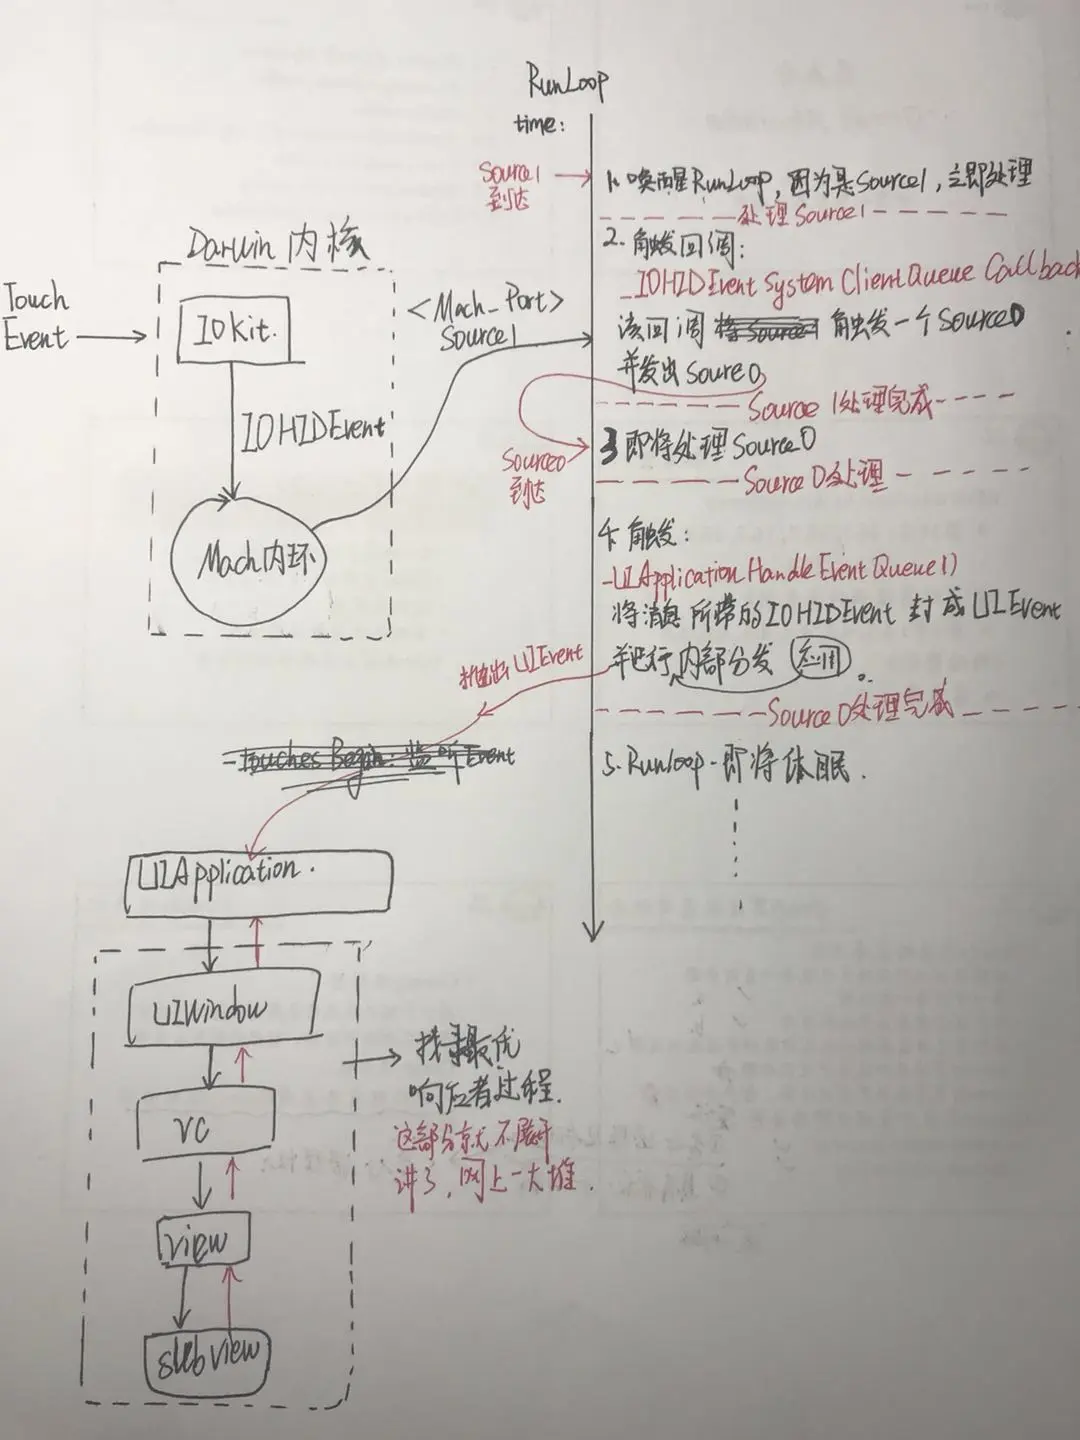 RunLoop
time:
Source1
到达
1. 唤醒RunLoop, 因为是Source1, 立即处理
处理 Source1
Darwin 内核
2. 触发回调:
_IOHIDEvent System Client Queue Callback
Touch
Event
IOKit.
<Mach_Port>
Source1
该回调 将Source1 触发一个Source0
并发出Soure0
Source 1处理完成
IOHIDEvent
3 即将处理 Source0
Source0
到达
Source 0处理
Mach内环
4. 触发:
-UIApplication Handle Event Queue()
将消息 所带的IOHIDEvent 封成UIEvent
抛出UIEvent
并进行 内部分发 应用 。
Source 0处理完成
-touches Begin: 监听Event
5. Runloop - 即将休眠.
UIApplication.
UIWindow
找寻最优
响应者过程.
VC
这部分就不展开
讲了, 网上一大堆.
view
subview